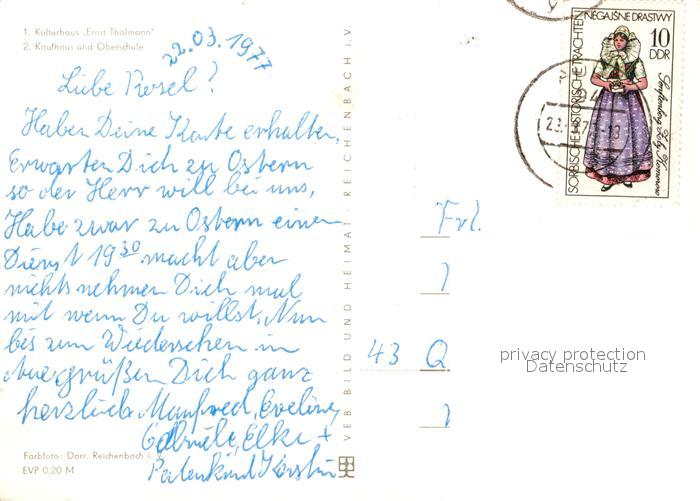 1. Kulturhaus „Ernst Thälmann"
2. Kaufhaus und Oberschule
22.03.1977
Liebe Rosel!
Haben Deine Karte erhalten,
Erwarten Dich zu Ostern
so der Herr will bei uns,
Habe zwar zu Ostern einen
Dienst 19 30 macht aber
nichts nehmen Dich mal
mit wenn Du willst, Nun
bis zum Wiedersehen in
Aue grüßen Dich ganz
herzlich Manfred, Eveline,
Gabriele, Elke +
Patenkind Kerstin
Farbfoto: Darr, Reichenbach i.
EVP 0,20 M
VEB BILD UND HEIMAT REICHENBACH i. V.
NĚGAJŠNE DRASTWY
10
DDR
SORBISCHE HISTORISCHE TRACHTEN
Senftenberg Zły Komorow
23.
Frl.
43 Q
privacy protection
Datenschutz